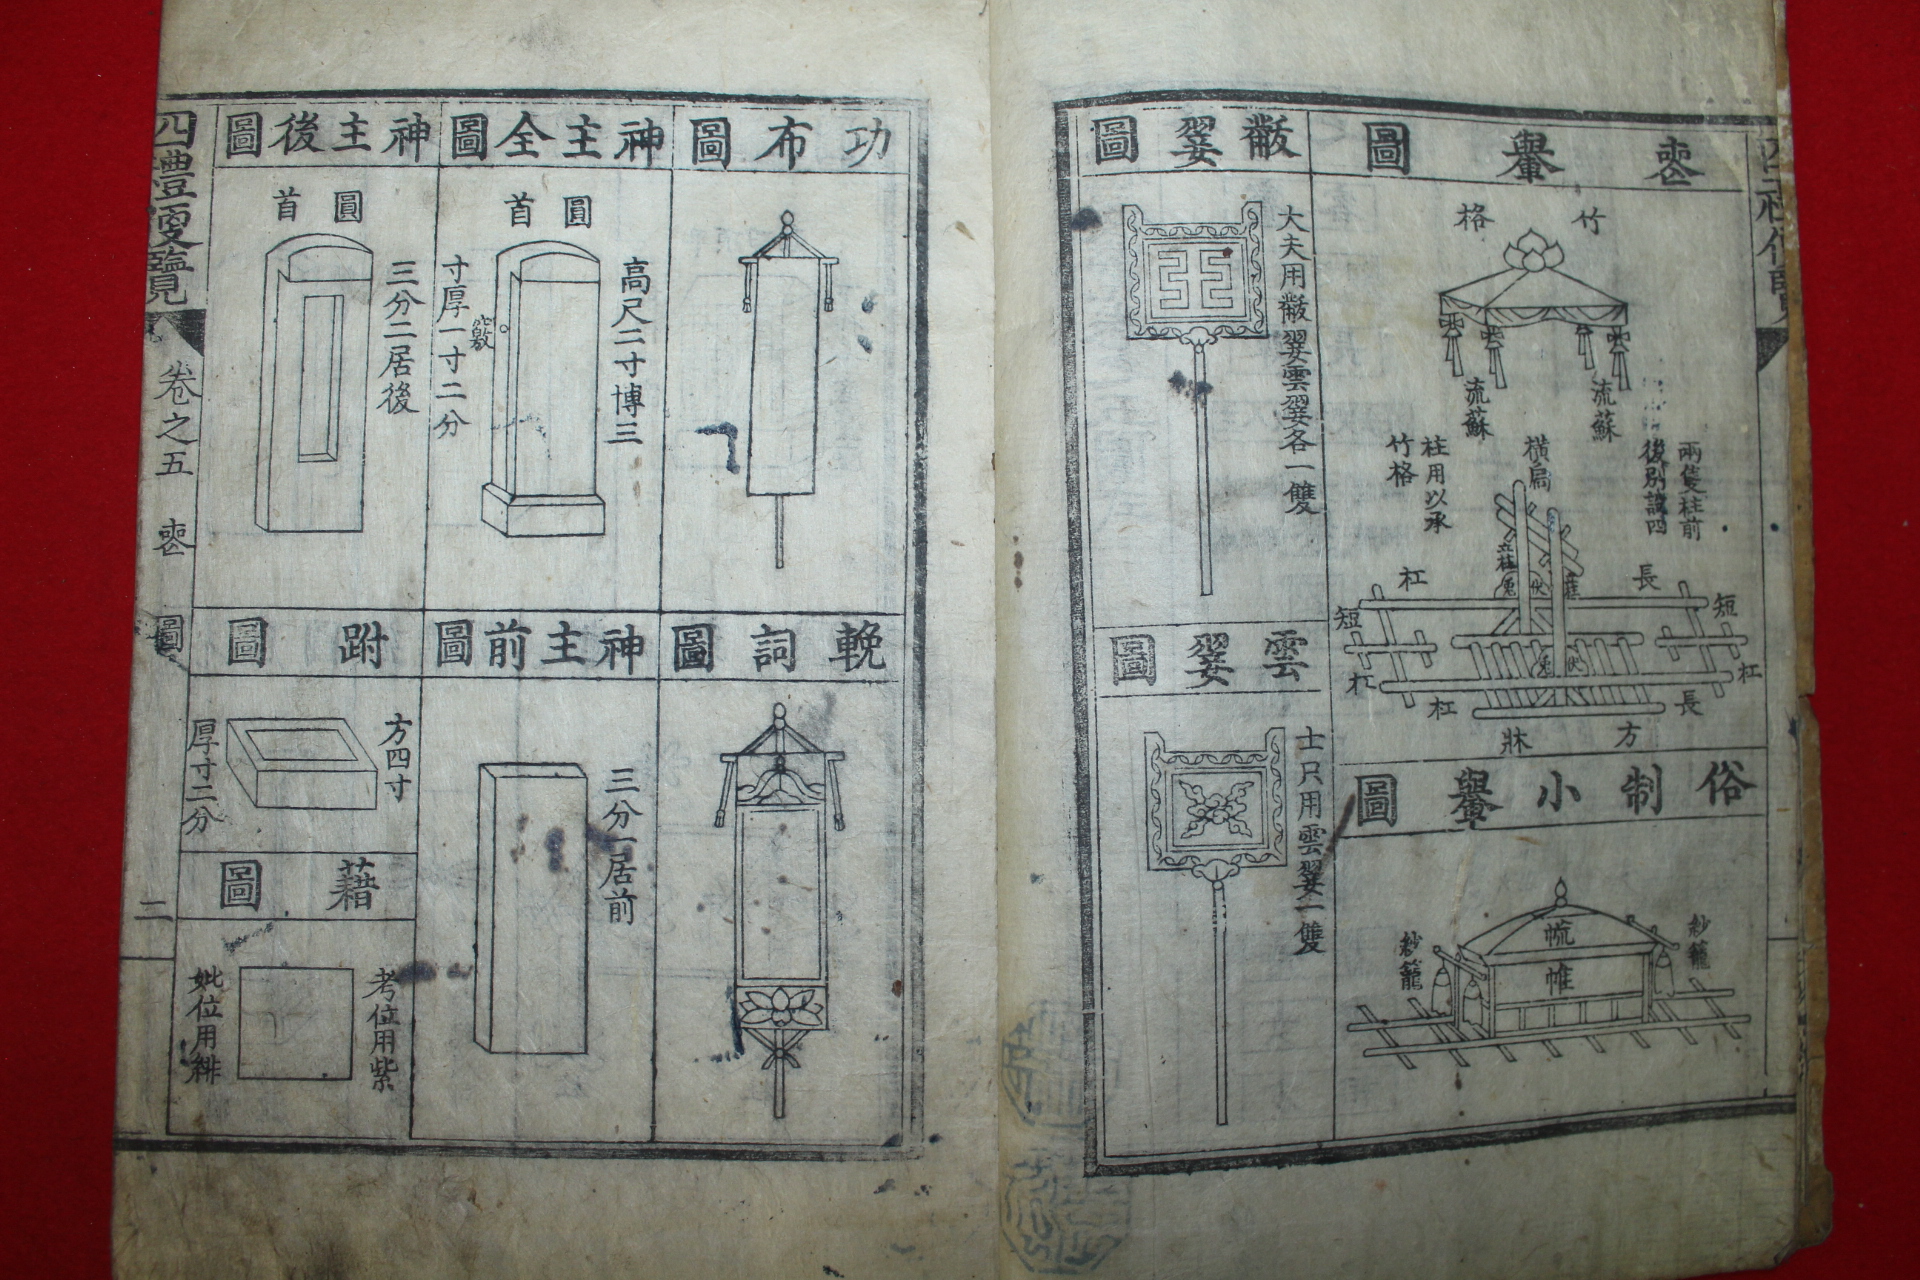 喪轝圖
竹格
流蘇
流蘇
兩隻柱前
後別設四
橫扃
柱用以承
竹格
立柱
伏兎
長杠
短杠
短杠
伏兎
長杠
方牀
俗制小轝圖
㡆
帷
紗籠
紗籠
黻翣圖
大夫用黻翣雲翣各一雙
雲翣圖
士只用雲翣一雙
功布圖
輓詞圖
神主全圖
圓首
高尺二寸博三
寸厚一寸二分
竅
神主前圖
三分一居前
神主後圖
圓首
三分二居後
趺圖
方四寸
厚寸二分
藉圖
考位用紫
妣位用緋
四禮便覽
卷之五
喪
圖
二